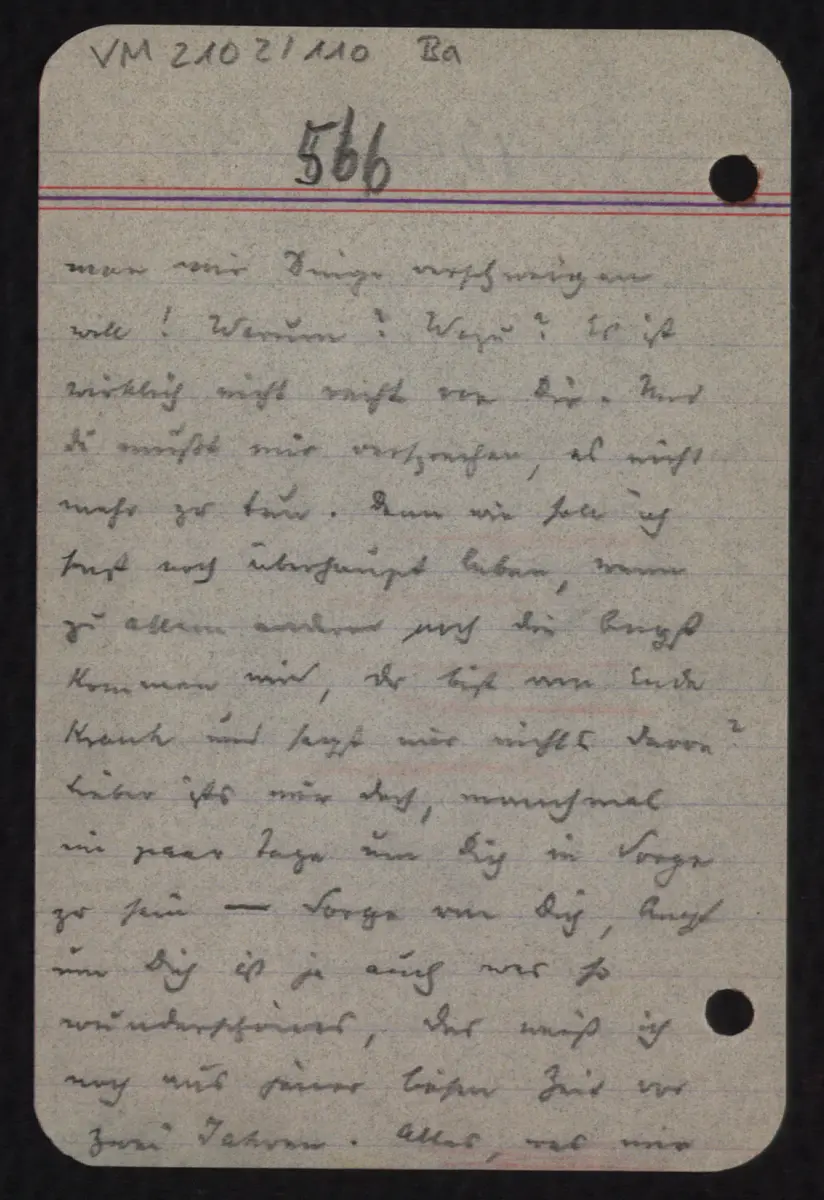 VM 2102/110 Ba
566
man mir Dinge verschweigen
will! Warum? Wozu? Es ist
wirklich nicht recht von Dir. Und
du mußt mir versprechen, es nicht
mehr zu tun. Denn wie soll ich
sonst noch überhaupt leben, wenn
zu allem andern noch die Angst
kommen wird, du bist am Ende
krank und sagst mir nichts davon?
Lieber ists mir doch, manchmal
ein paar Tage um Dich in Sorge
zu sein — Sorge um Dich, Angst
um Dich ist ja auch was so
wunderschönes, das weiß ich
noch aus jener bösen Zeit vor
zwei Jahren. Alles, was mir